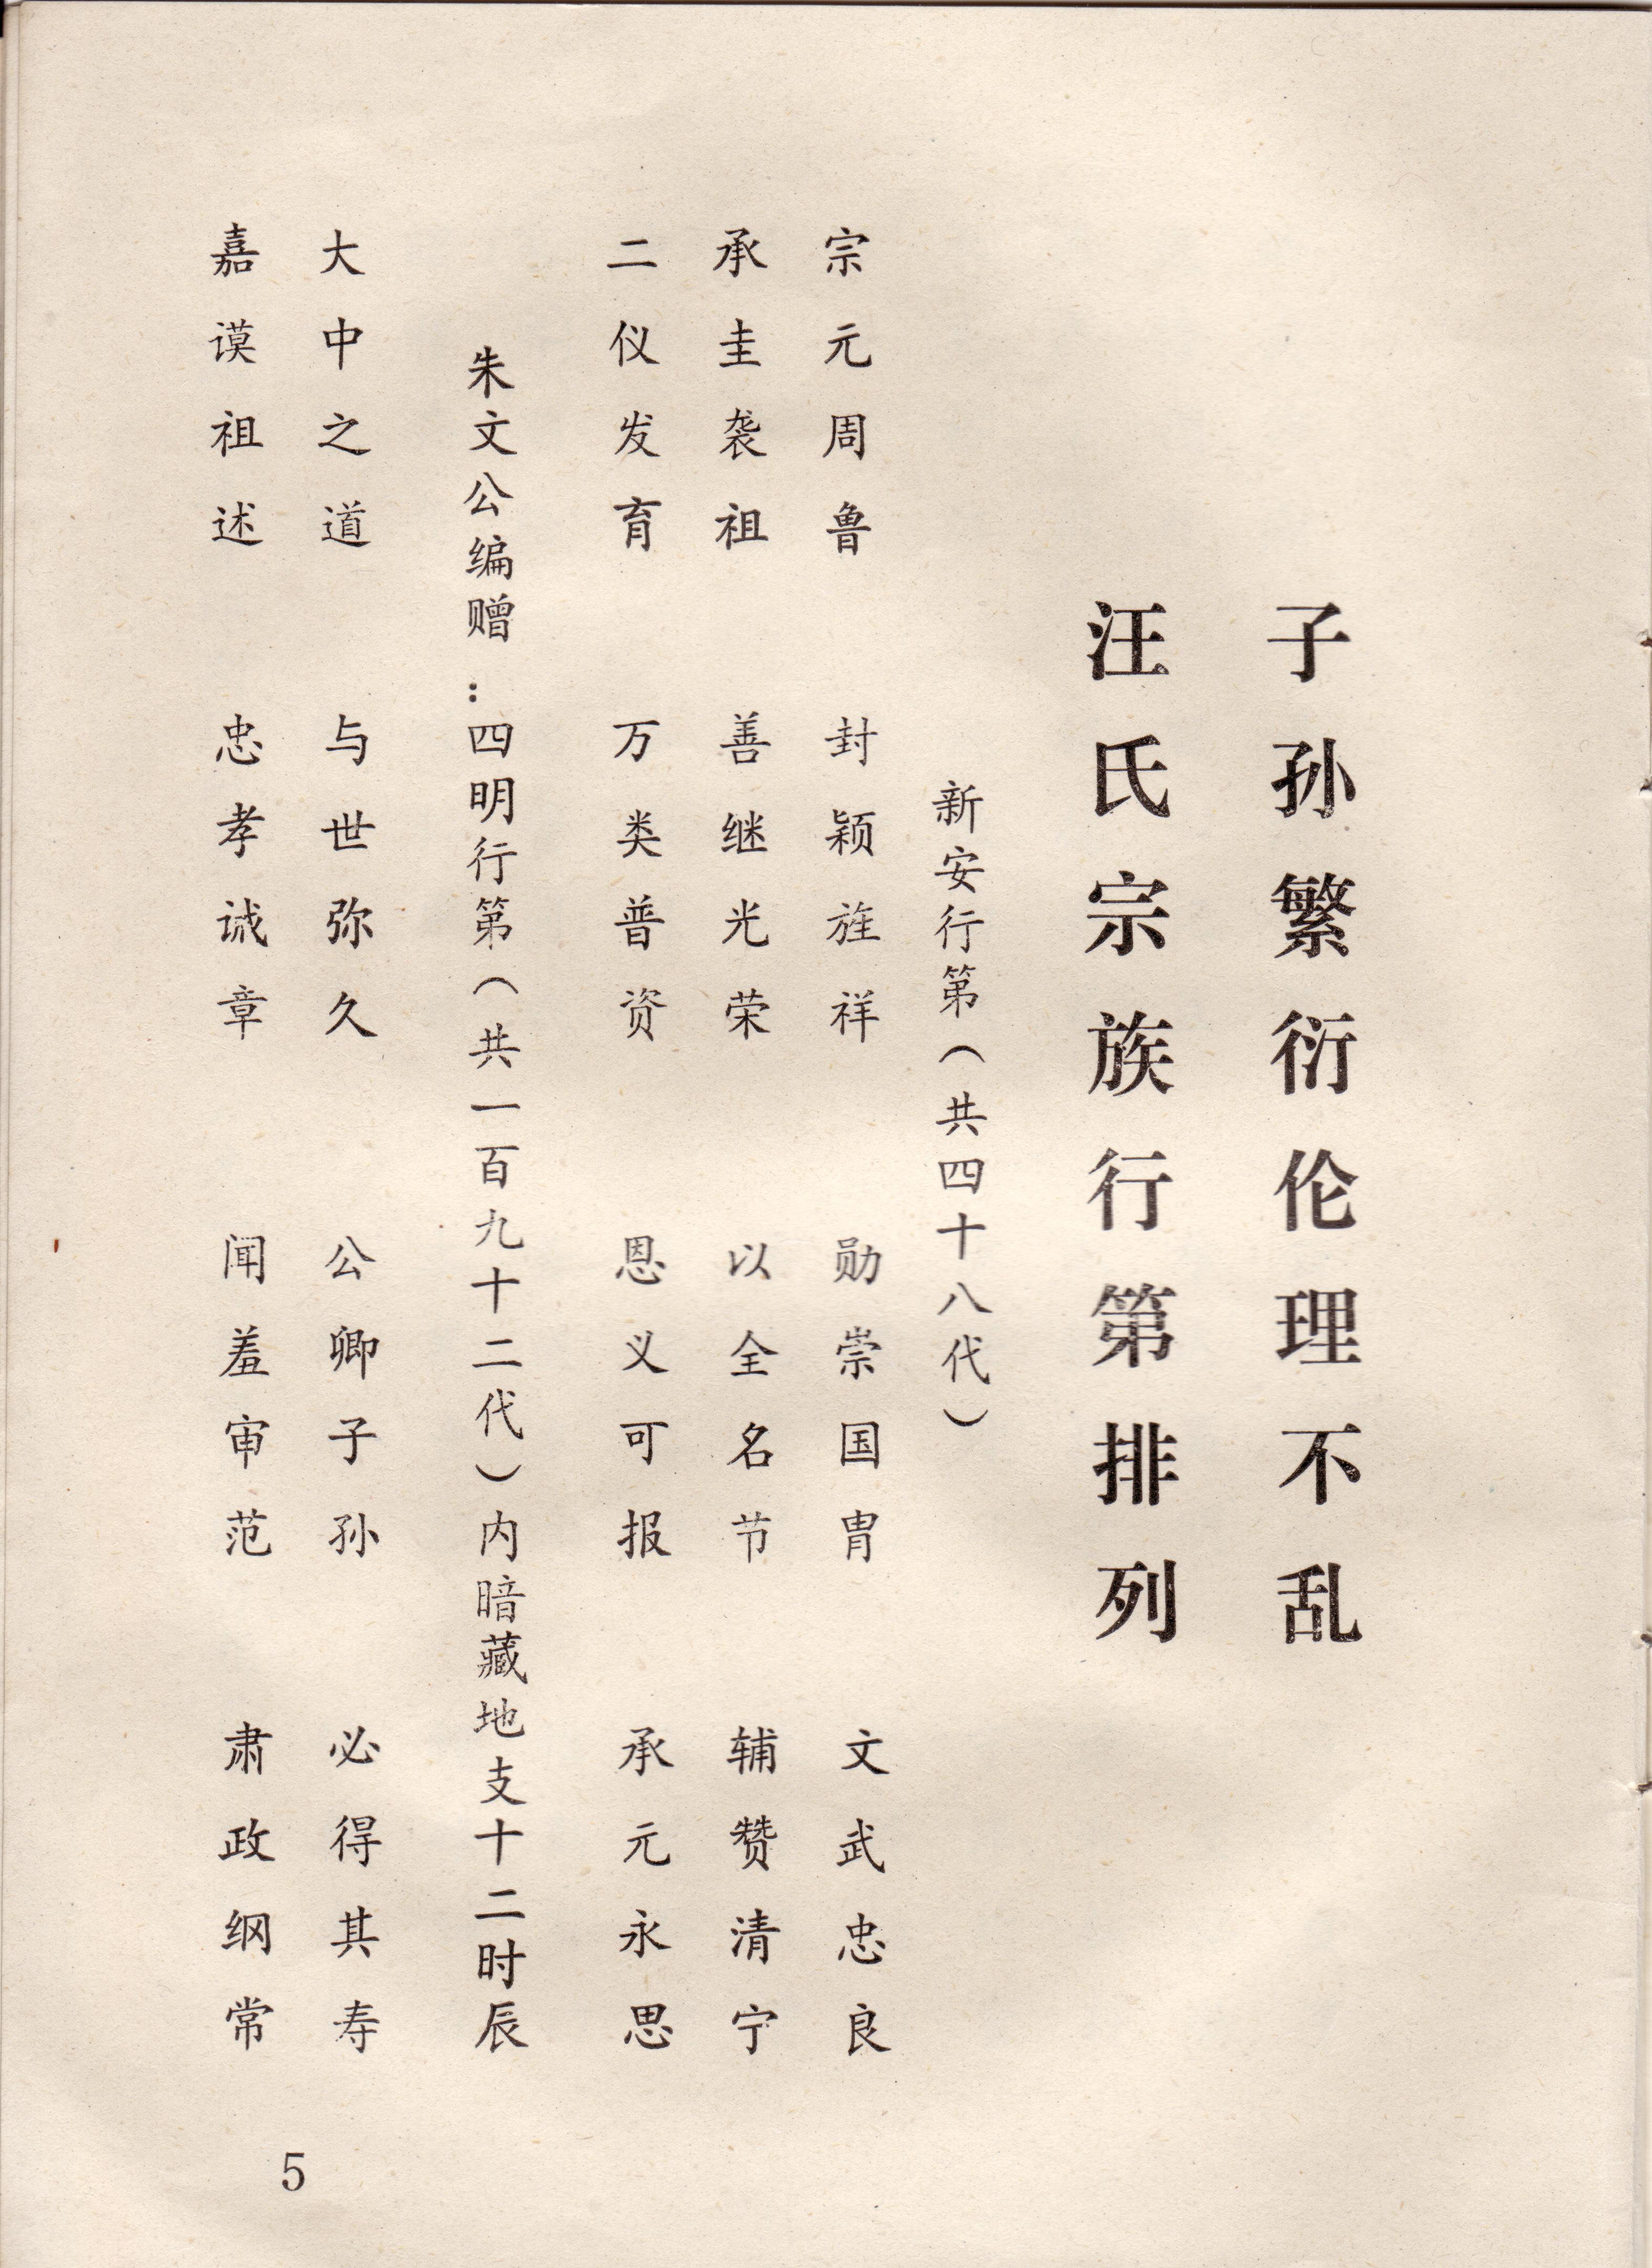 子孙繁衍伦理不乱
汪氏宗族行第排列
新安行第（共四十八代）
宗元周鲁 封颖旌祥 勋崇国胄 文武忠良
承圭袭祖 善继光荣 以全名节 辅赞清宁
二仪发育 万类普资 恩义可报 承元永思
朱文公编赠：四明行第（共一百九十二代）内暗藏地支十二时辰
大中之道 与世弥久 公卿子孙 必得其寿
嘉谟祖述 忠孝诚章 闻羞审范 肃政纲常
5